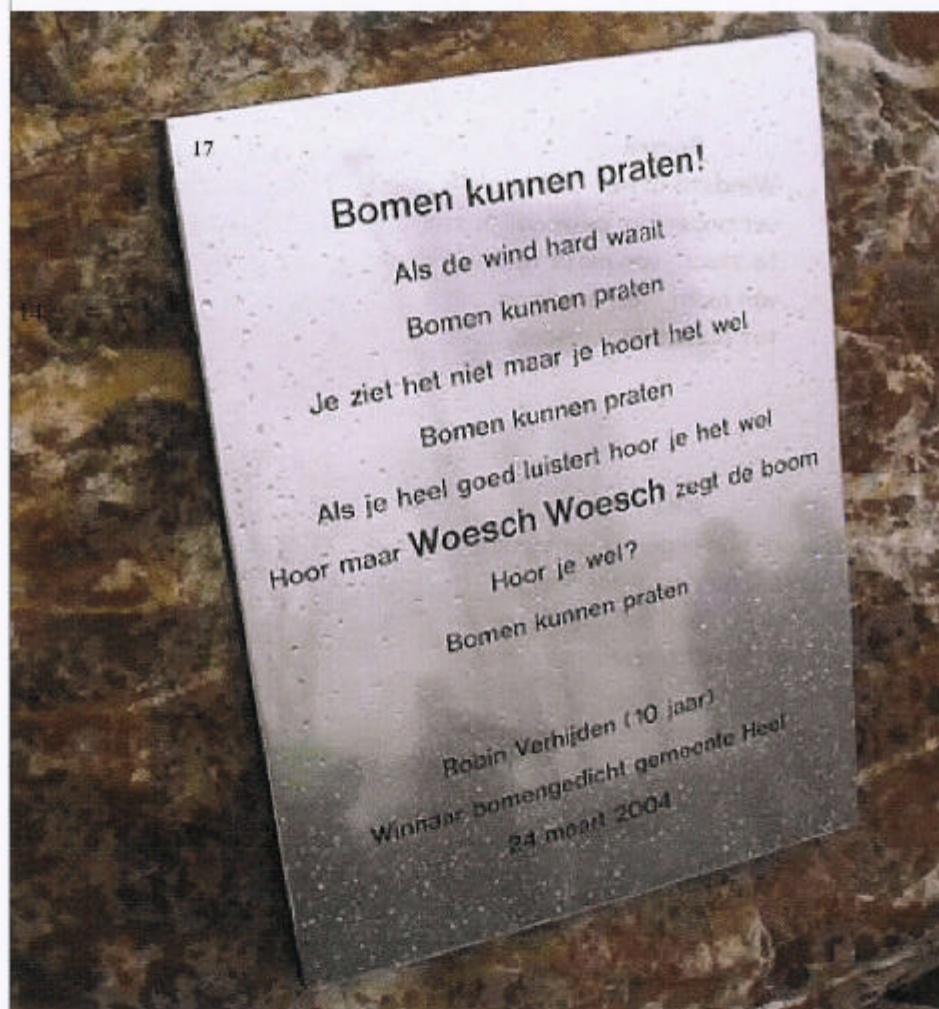 17
Bomen kunnen praten!
Als de wind hard waait
Bomen kunnen praten
Je ziet het niet maar je hoort het wel
Bomen kunnen praten
Als je heel goed luistert hoor je het wel
Hoor maar Woesch Woesch zegt de boom
Hoor je wel?
Bomen kunnen praten
Robin Verhijden (10 jaar)
Winnaar bomengedicht gemeente Heel
24 maart 2004